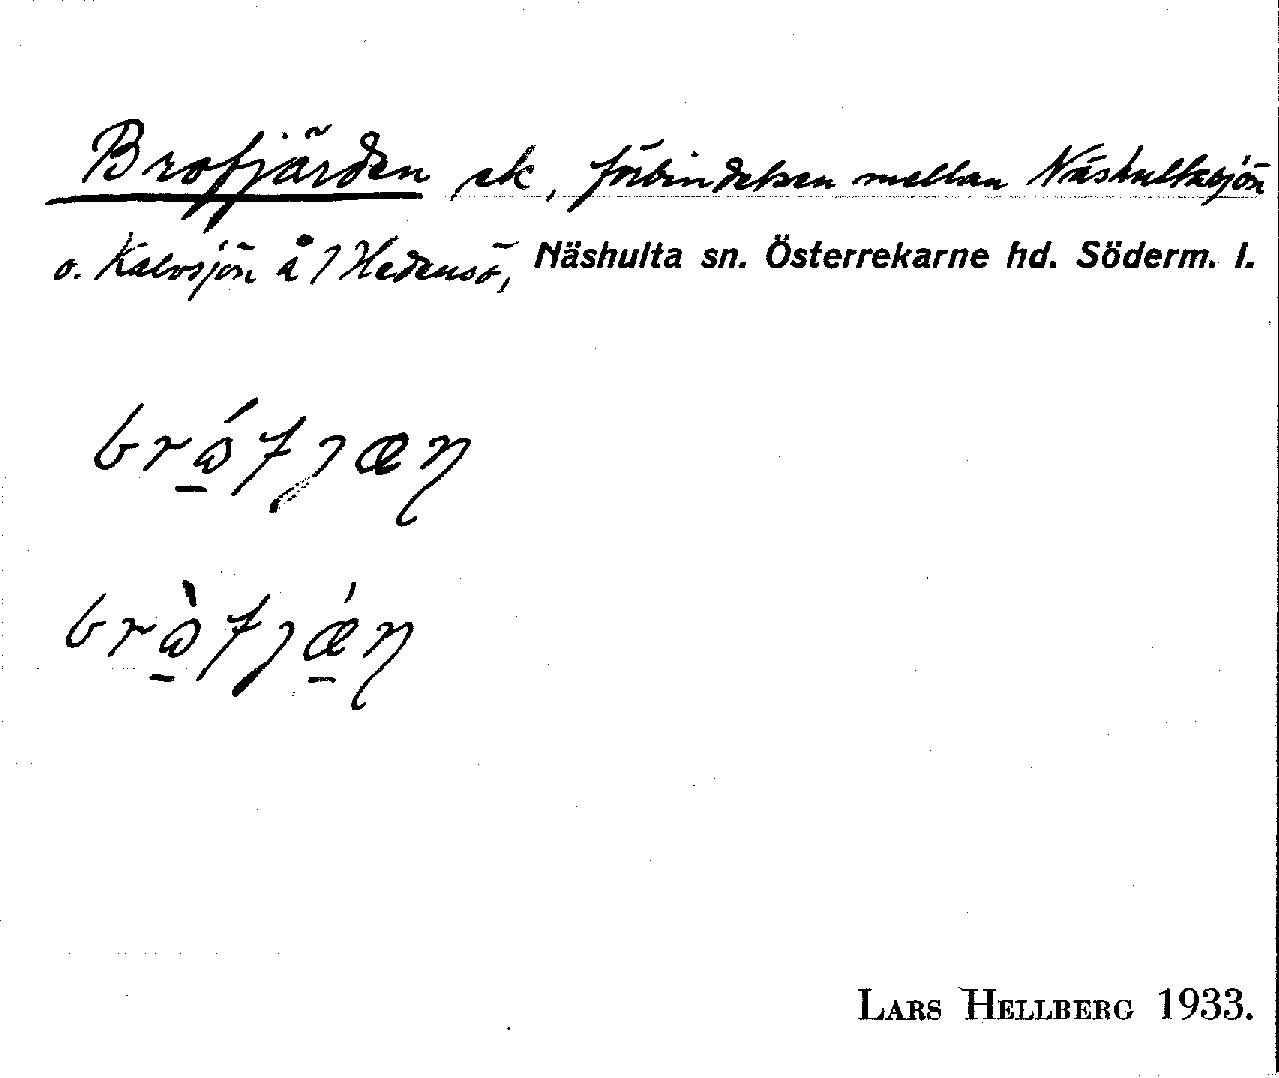 Brofjärden ek, förbindelsen mellan Näshultasjön
o. Kalvsjön å 1 Hedensö, Näshulta sn. Österrekarne hd. Söderm. l.
brǻ̱fjæn
brὰ̱fjǽ̱n
LARS HELLBERG 1933.